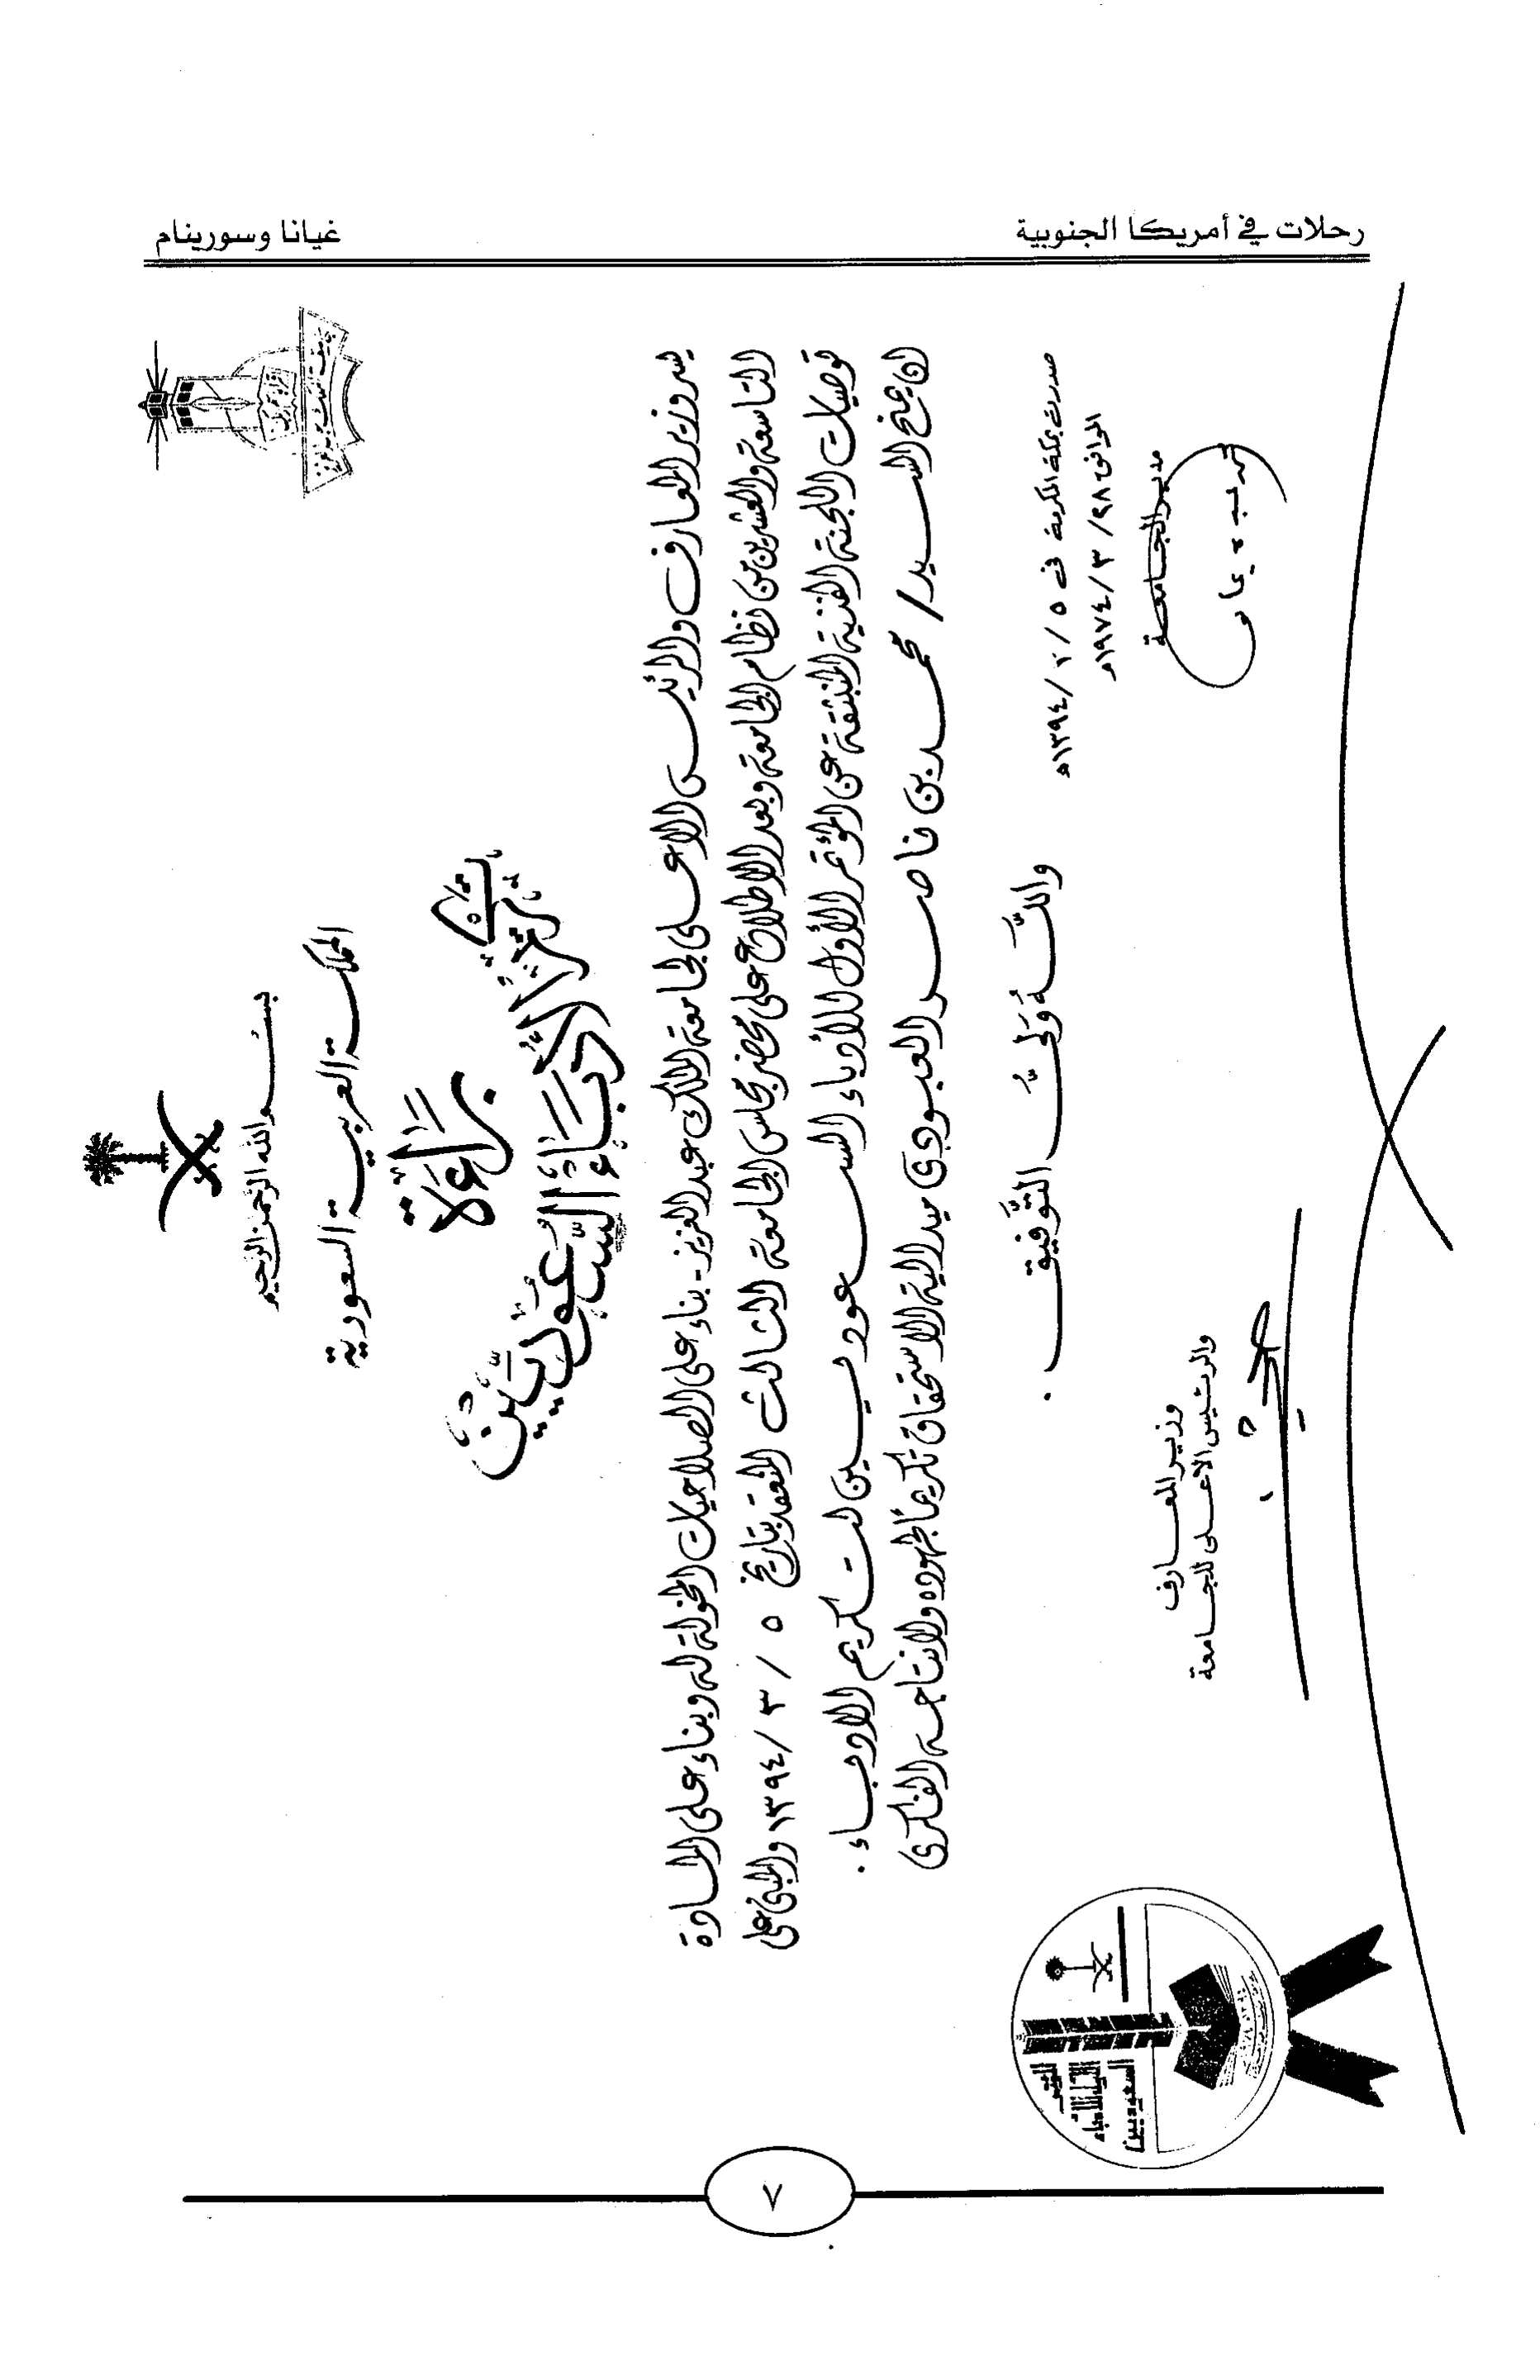 رحلات في أمريكا الجنوبية
غيانا وسورينام
بسم الله الرحمن الرحيم
المملكة العربية السعودية
براءة
تكريم الأدباء السعوديين
يسر وزير المعارف والرئيس الاعلى لجامعة الملك عبد العزيز - بناء على الصلاحيات المخولة له وبناء على المادة
التاسعة والعشرين من نظام الجامعة وبعد الاطلاع على محضر مجلس الجامعة الثالث المنعقد بتاريخ ٥ / ٣ / ١٣٩٤ والمبني على
توصيات اللجنة الفنية المنبثقة عن المؤتمر الأول للأدباء السعوديين لتكريم الادباء .
ان يمنح السيد / محمد بن ناصر العبودي ميدالية الاستحقاق تكريمًا لجهوده ولانتاجه الفكري
والله ولي التوفيق .
صدرت بمكة المكرمة في ٥ / ٣ / ١٣٩٤ه
الموافق ٢٨ / ٣ / ١٩٧٤م
مدير الجامعة
وزير المعارف
والرئيس الاعلى للجامعة
المؤتمر
الأول للأدباء
السعوديين
٧